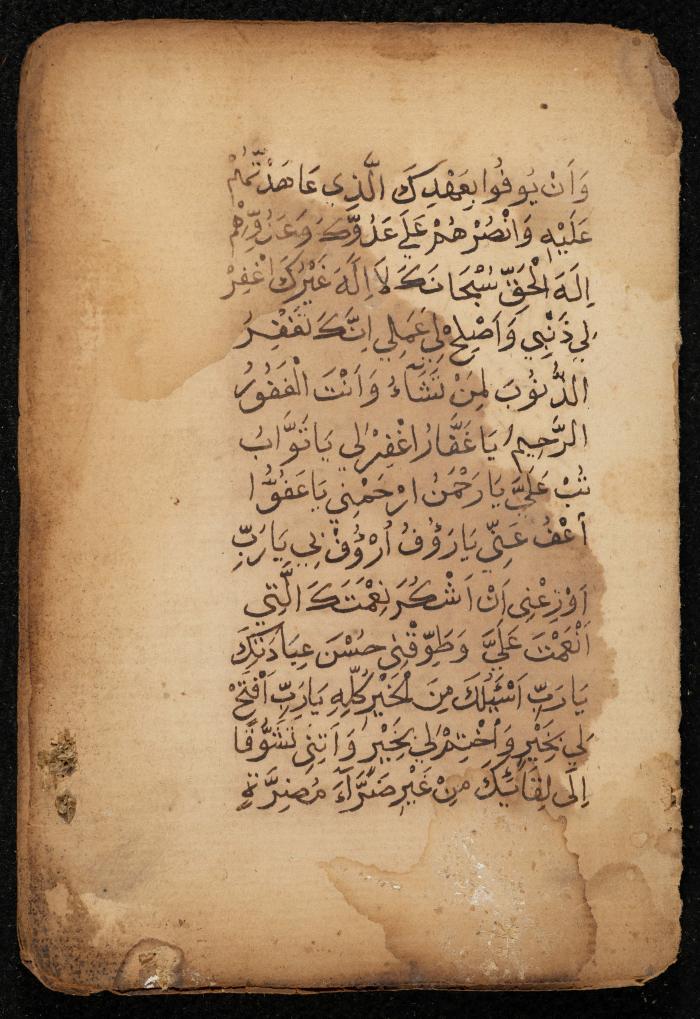 وَاَنْ يُوفُوا بِعَهْدِكَ الَّذِي عَاهَدْتَّهُمْ
عَلَيْهِ وَانْصُرْهُمْ عَلَى عَدُوِّكَ وَعَدُوِّهِمْ
اِلَهَ الْحَقِّ سُبْحَانَكَ لَا اِلَهَ غَيْرُكَ اغْفِرْ
لِي ذَنْبِي وَاَصْلِحْ لِي عَمَلِي اِنَّكَ تَغْفِرُ
الذُّنُوبَ لِمَنْ تَشَآءُ وَاَنْتَ الْغَفُورُ
الرَّحِيمُ يَا غَفَّارُ اغْفِرْ لِي يَا تَوَّابُ
تُبْ عَلَيَّ يَا رَحْمَنُ ارْحَمْنِي يَا عَفُوُّ ا
اُعْفُ عَنِّي يَا رَؤُفُ اُرْؤُفْ بِي يَا رَبِّ
اَوْزِعْنِي اَنْ اَشْكُرَ نِعْمَتَكَ الَّتِي
اَنْعَمْتَ عَلَيَّ وَطَوِّقْنِي حُسْنَ عِبَادَتِكَ
يَا رَبِّ اَسْئَلُكَ مِنَ الْخَيْرِ كُلِّهِ يَا رَبِّ اَفْتَحْ
لِي بِخَيْرٍ وَاخْتِمْ لِي بِخَيْرٍ وَاَتِنِي تَشَوُّقًا
اِلَى لِقَائِكَ مِنْ غَيْرِ ضَرَّآءَ مُضِرَّةٍ